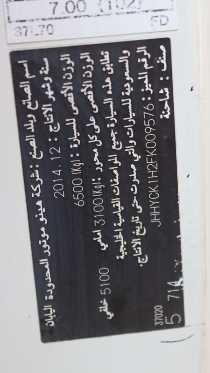 7.00 (102)
5D
37L70
اسم الصانع وبلد الصنع : شركة هينو موتور المحدودة اليابان
سنة وشهر الانتاج : 2014.12
الوزن الأقصى للسيارة : (Kg) 6500
الوزن الأقصى على كل محور : (Kg) 3100 امامي 5100 خلفي
تطابق هذه السيارة جميع المواصفات القياسية الخليجية
والسعودية للسيارات والتي صدرت حتى تاريخ الانتاج.
الرقم المميز : JHHYCK1H2FK009576
صنف : شاحنة
37020
5 71